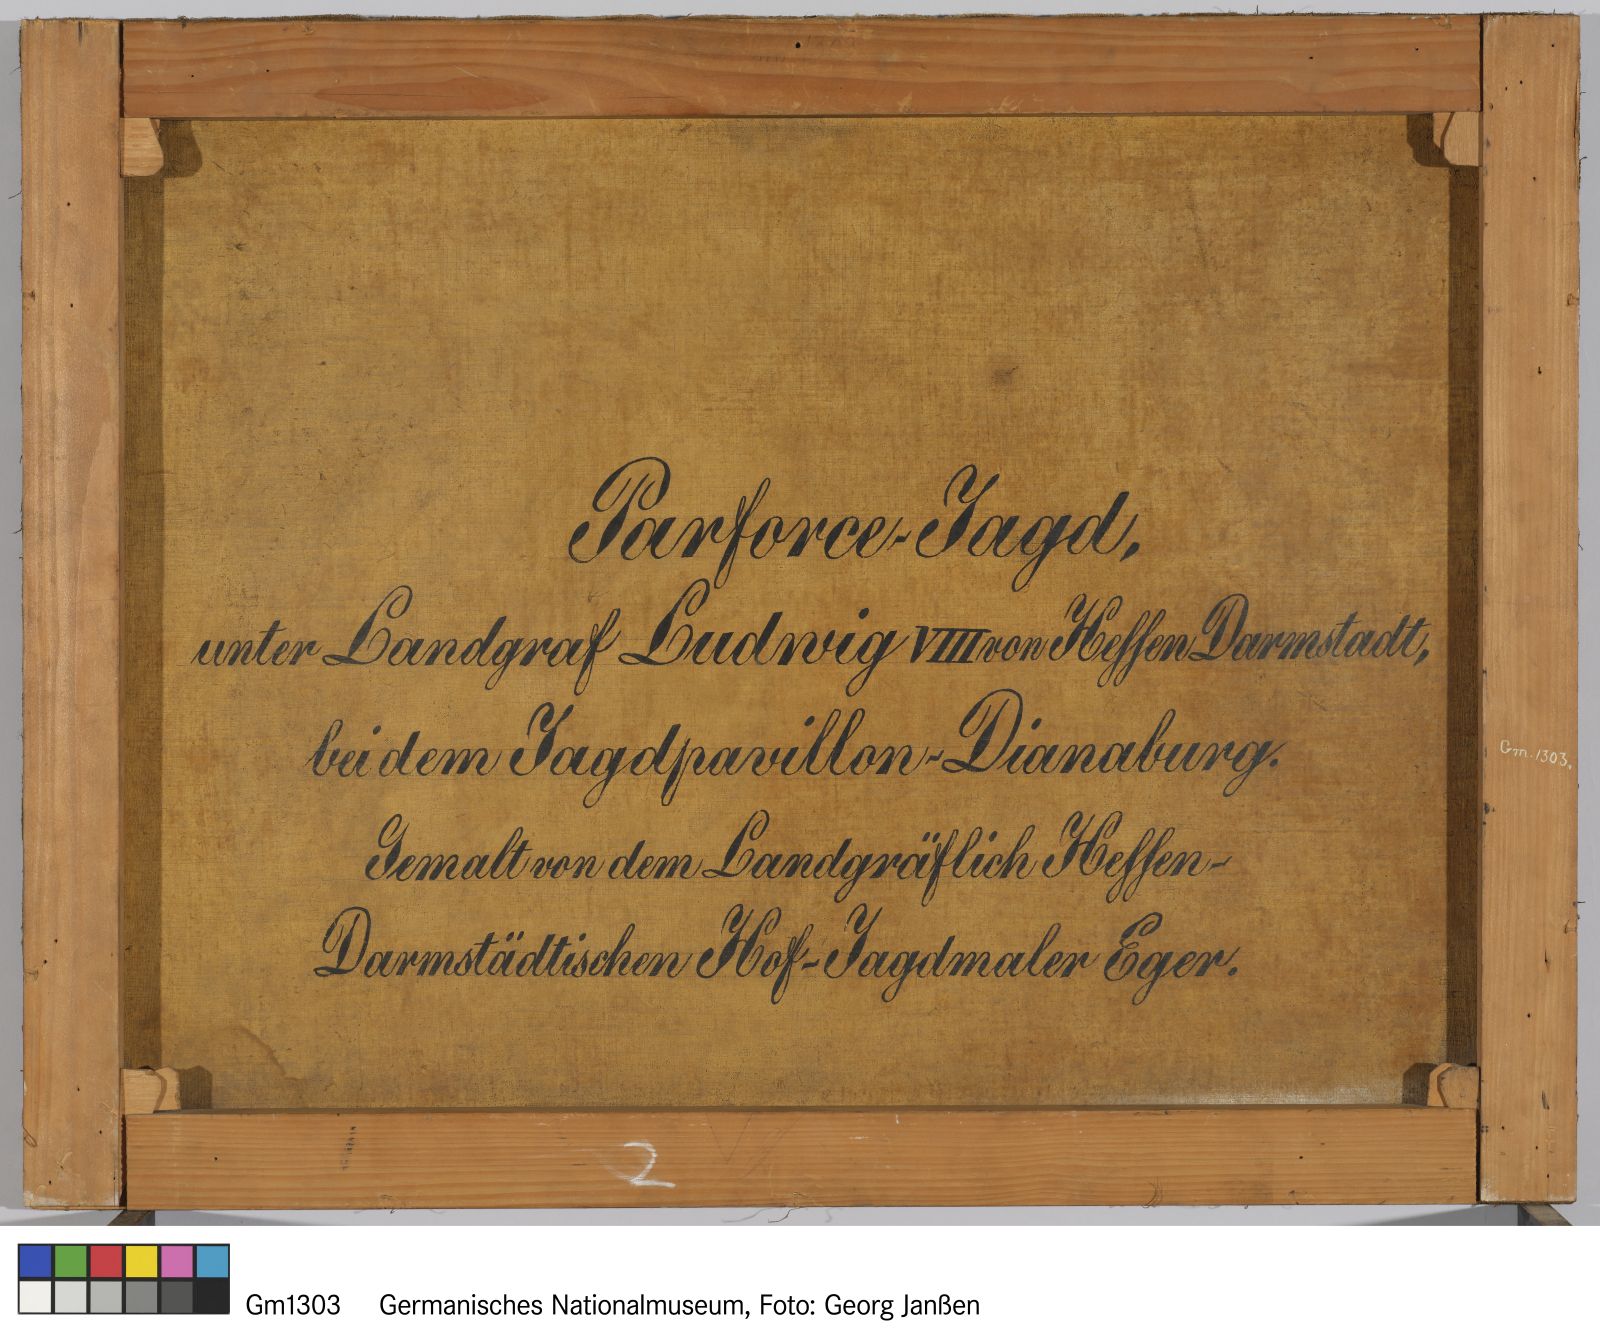 Parforce-Jagd,
unter Landgraf Ludwig VIII von Heſſen Darmstadt,
bei dem Jagdpavillon-Dianaburg.
Gm. 1303.
Gemalt von dem Landgräflich Heſſen-
Darmstädtischen Hof-Jagdmaler Eger.
2
Gm1303 Germanisches Nationalmuseum, Foto: Georg Janßen